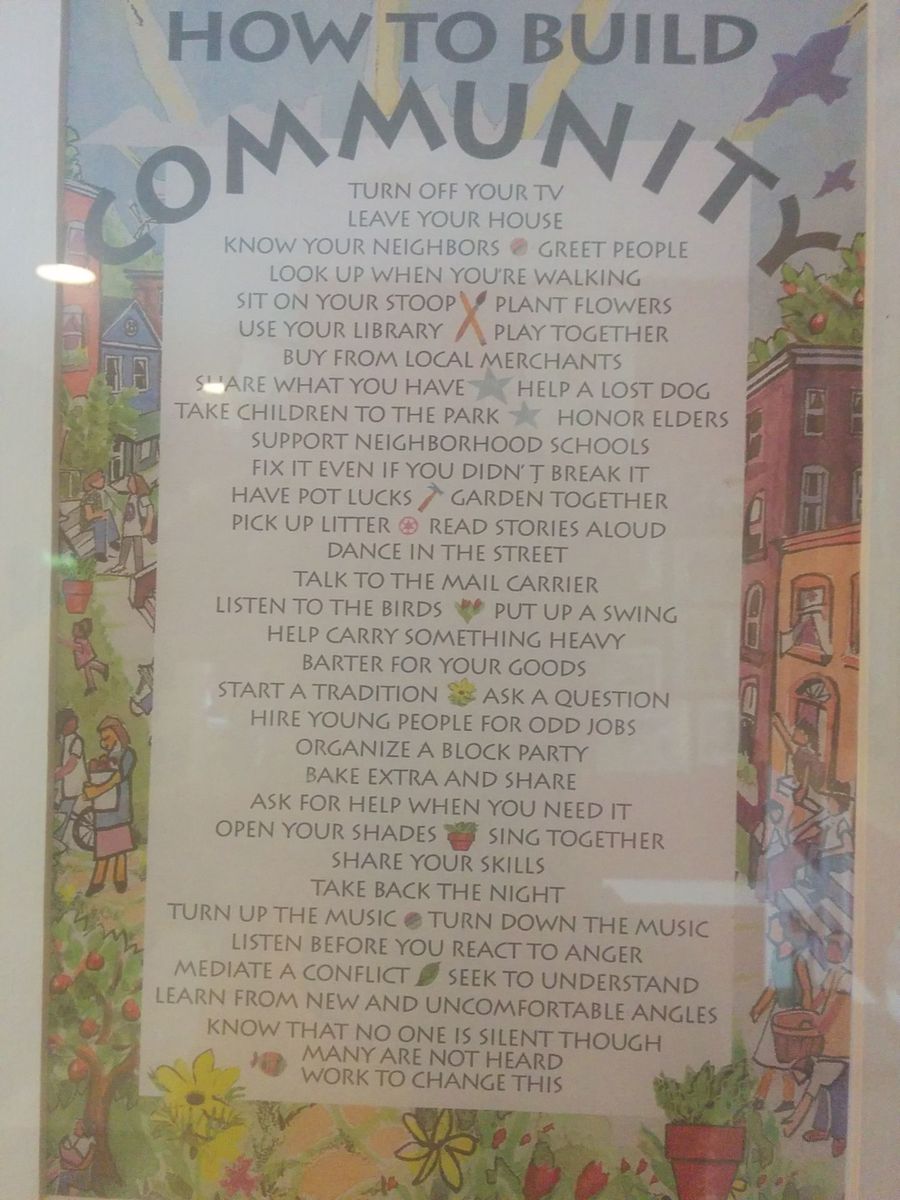 HOW TO BUILD
COMMUNITY
TURN OFF YOUR TV
LEAVE YOUR HOUSE
KNOW YOUR NEIGHBORS GREET PEOPLE
LOOK UP WHEN YOU'RE WALKING
SIT ON YOUR STOOP PLANT FLOWERS
USE YOUR LIBRARY PLAY TOGETHER
BUY FROM LOCAL MERCHANTS
SHARE WHAT YOU HAVE HELP A LOST DOG
TAKE CHILDREN TO THE PARK HONOR ELDERS
SUPPORT NEIGHBORHOOD SCHOOLS
FIX IT EVEN IF YOU DIDN'T BREAK IT
HAVE POT LUCKS GARDEN TOGETHER
PICK UP LITTER READ STORIES ALOUD
DANCE IN THE STREET
TALK TO THE MAIL CARRIER
LISTEN TO THE BIRDS PUT UP A SWING
HELP CARRY SOMETHING HEAVY
BARTER FOR YOUR GOODS
START A TRADITION ASK A QUESTION
HIRE YOUNG PEOPLE FOR ODD JOBS
ORGANIZE A BLOCK PARTY
BAKE EXTRA AND SHARE
ASK FOR HELP WHEN YOU NEED IT
OPEN YOUR SHADES SING TOGETHER
SHARE YOUR SKILLS
TAKE BACK THE NIGHT
TURN UP THE MUSIC TURN DOWN THE MUSIC
LISTEN BEFORE YOU REACT TO ANGER
MEDIATE A CONFLICT SEEK TO UNDERSTAND
LEARN FROM NEW AND UNCOMFORTABLE ANGLES
KNOW THAT NO ONE IS SILENT THOUGH
MANY ARE NOT HEARD
WORK TO CHANGE THIS